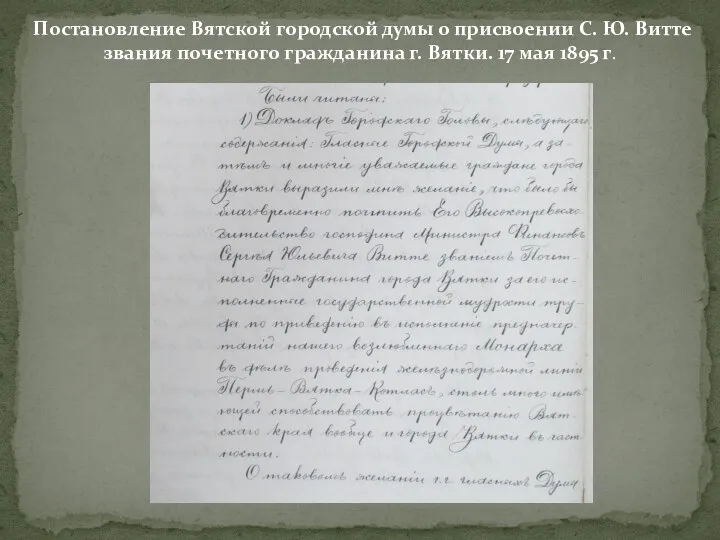 Постановление Вятской городской думы о присвоении С. Ю. Витте
звания почетного гражданина г. Вятки. 17 мая 1895 г.
Были читаны:
1) Докладъ Городскаго Головы, слѣдующаго
содержанія: Гласные Городской Думы, а за-
тѣмъ и многіе уважаемые граждане города
Вятки выразили мнѣ желаніе, что было бы
благовременно почтить Его Высокопревосхо-
дительство господина Министра Финансовъ
Сергѣя Юльевича Витте званіемъ Почет-
наго Гражданина города Вятки за его ис-
полненные государственной мудрости тру-
ды по приведенію въ исполненіе предначер-
таній нашего возлюбленнаго Монарха
въ дѣлѣ проведенія желѣзнодорожной линіи
Пермь-Вятка-Котласъ, столь много имѣ-
ющей способствовать процвѣтанію Вят-
скаго края вообще и города Вятки въ част-
ности.
О таковомъ желаніи г.г. гласныхъ Думы